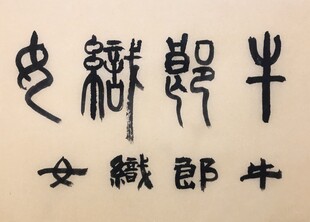 牛郎織女
牛郎織女